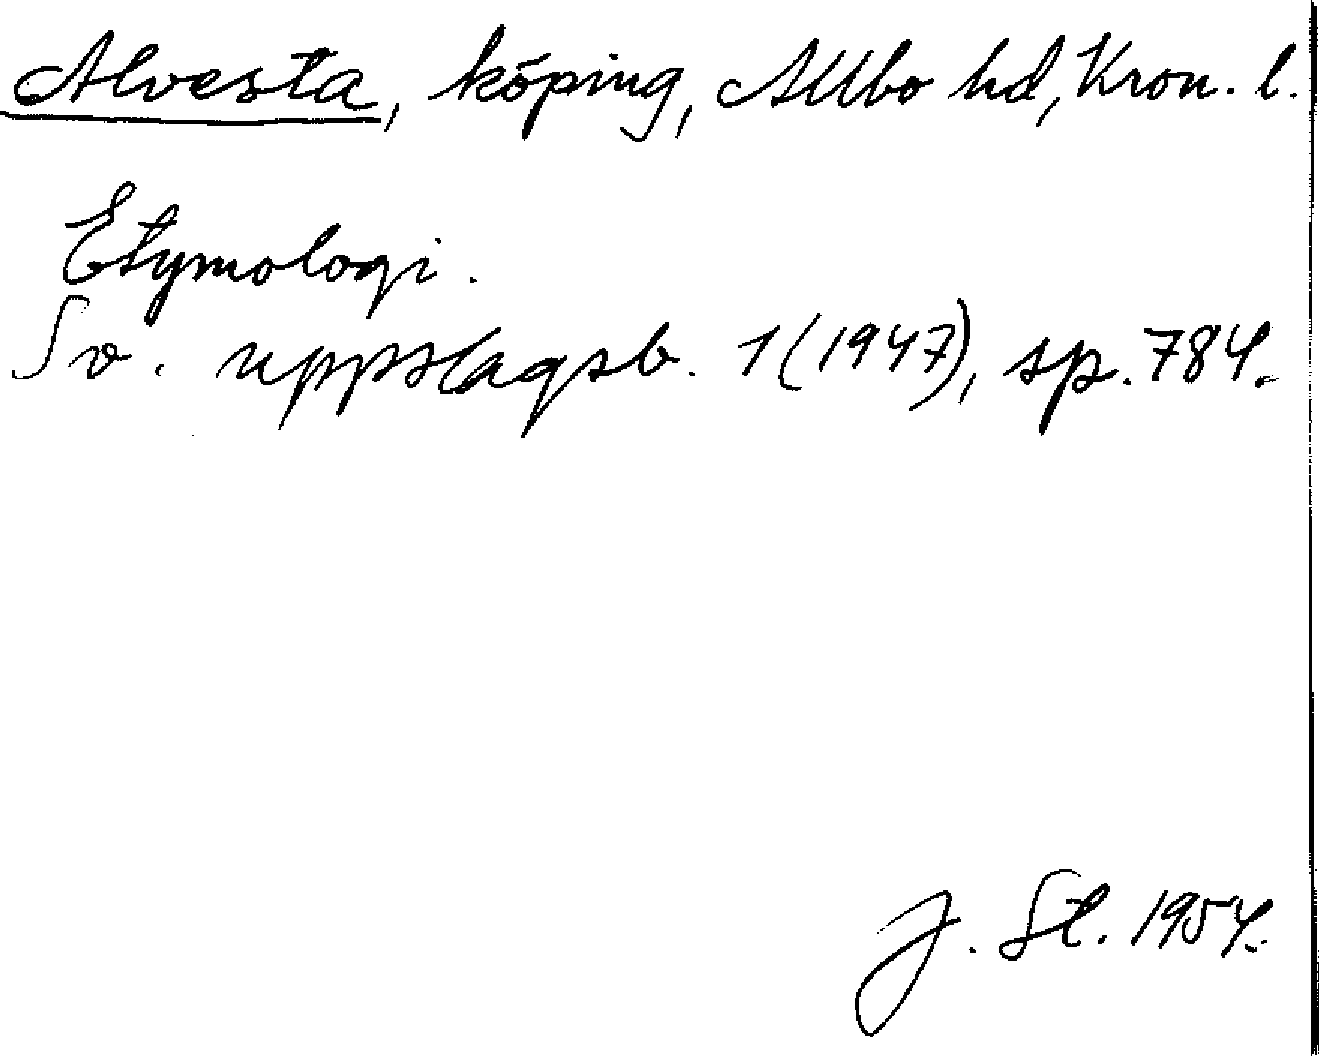 Alvesta, köping, Allbo hd, Kron. l.
Etymologi.
Sv. uppslagsb. 1 (1947), sp. 784.
J. St. 1954.